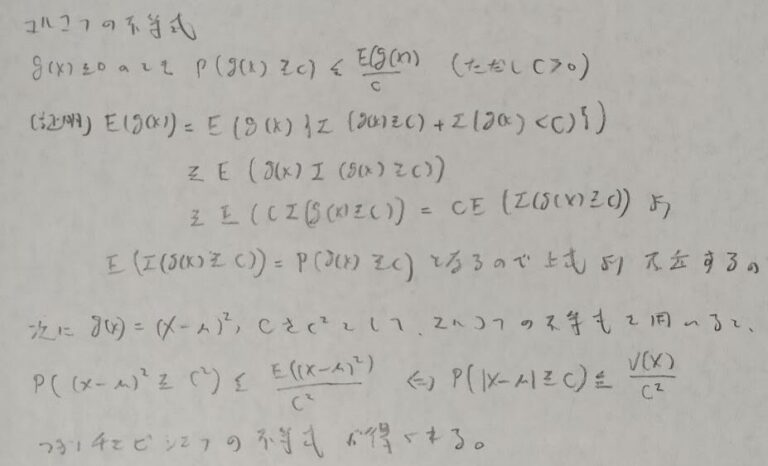 マルコフの不等式
g(x)≧0のとき P(g(x)≧c) ≦ E(g(x))/c (ただしc>0)
(証明) E(g(x)) = E(g(x){I(g(x)≧c)+I(g(x)<c)})
≧ E(g(x)I(g(x)≧c))
≧ E(cI(g(x)≧c)) = cE(I(g(x)≧c)) より
E(I(g(x)≧c)) = P(g(x)≧c) となるので上式より成立する。
次に g(x)=(x-μ)², cをc²として、マルコフの不等式を用いると、
P((x-μ)²≧c²) ≦ E((x-μ)²)/c² ⇔ P(|x-μ|≧c) ≦ V(x)/c²
つまりチェビシェフの不等式が得られる。